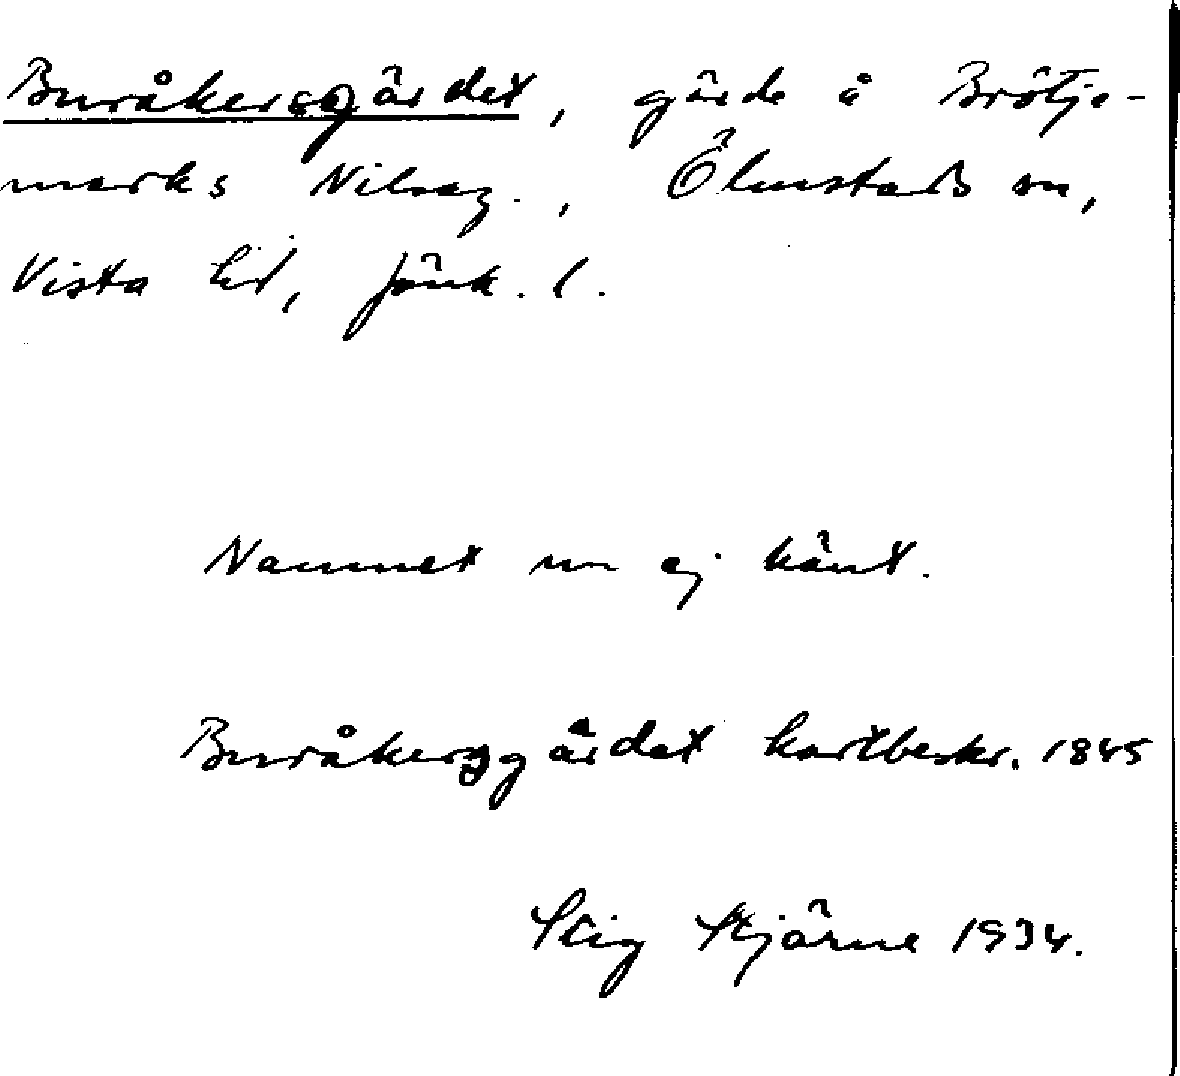 Buråkersgärdet, gärde å Brötje-
marks Nilsag., Ölmstads sn,
Vista hd, Jönk. l.
Namnet nu ej känt.
Buråkersgärdet kartbeskr. 1845
Stig Stjärne 1934.